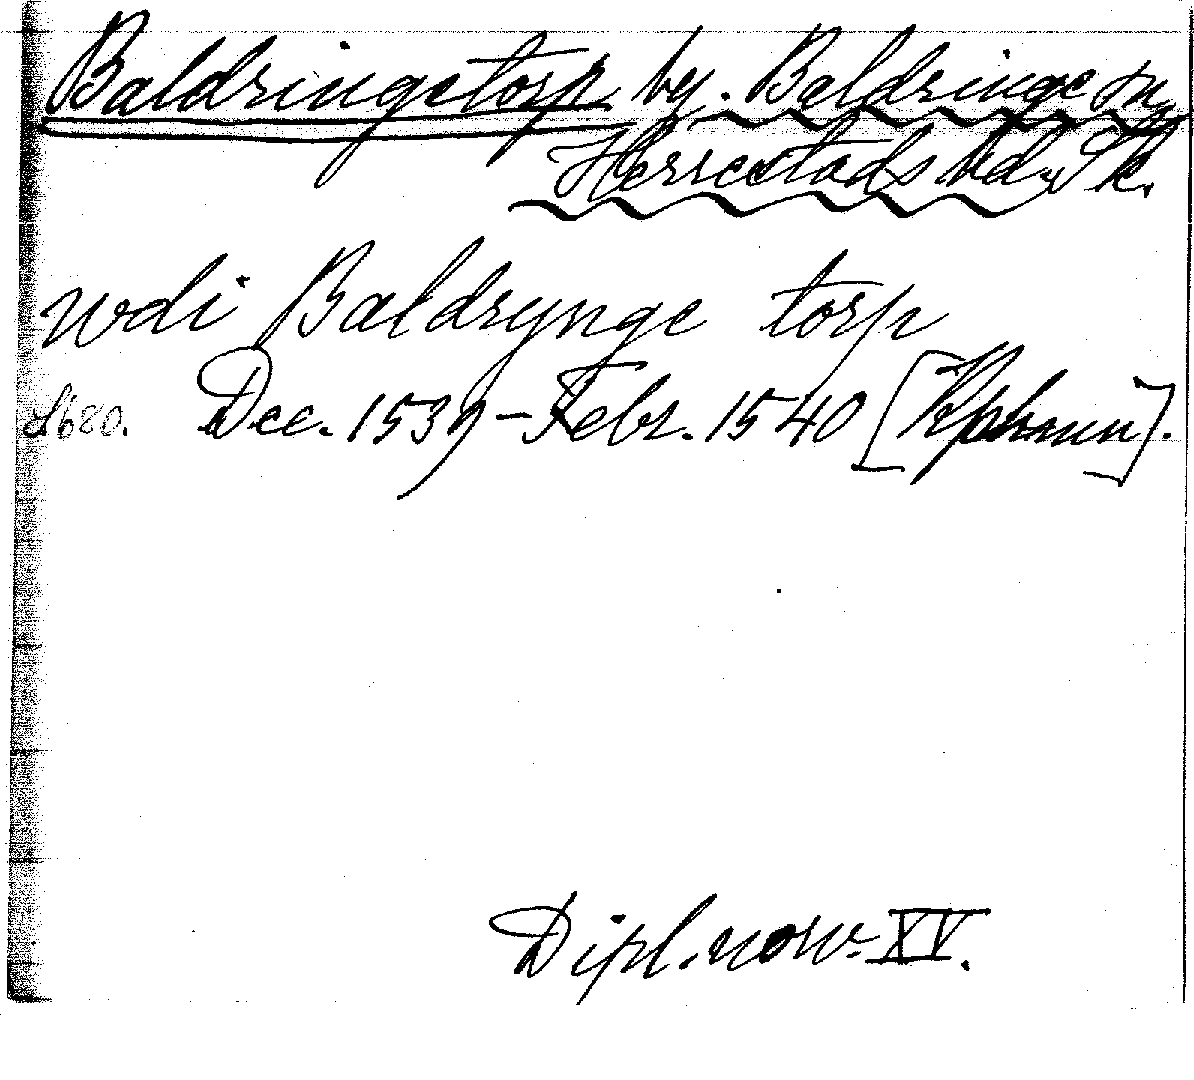 Baldringetorp by. Baldringe sn,
Herrestads hd, Sk.
wdi Baldrynge torp
s680. Dec. 1539 – Febr. 1540 [Kphmn].
Dipl. norv. XV.